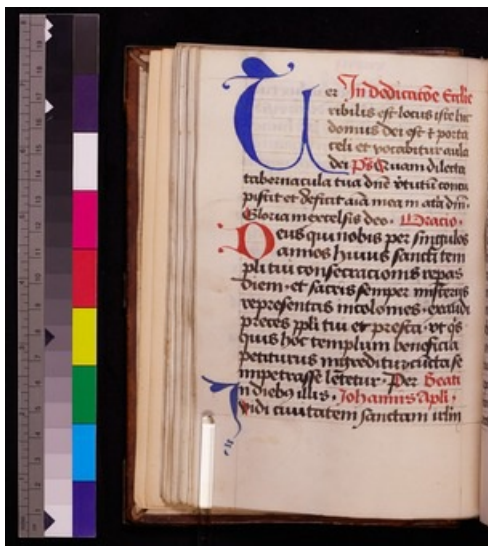 Ter In dedicatõe Ecclie
ribilis est locus iste hic
domus dei est ⁊ porta
celi et vocabitur aula
dei Ps Quam dilecta
tabernacula tua dñe v̾tutum concu
piscit et deficit aĩa mea in atria dñi.
Gloria in excelsis deo. Oracio.
Deus qui nobis per singulos
annos huius sancti tem
pli tui consecracionis repas
diem. et sacris semper misteriis
representas incolomes. exaudi
preces ppli tui et presta. vt qͥs
quis hoc templum beneficia
petiturus ingreditur cuncta se
impetrasse letetur. Per Beati
In diebꝫ illis. Johannis Apli.
vidi ciuitatem sanctam irlm